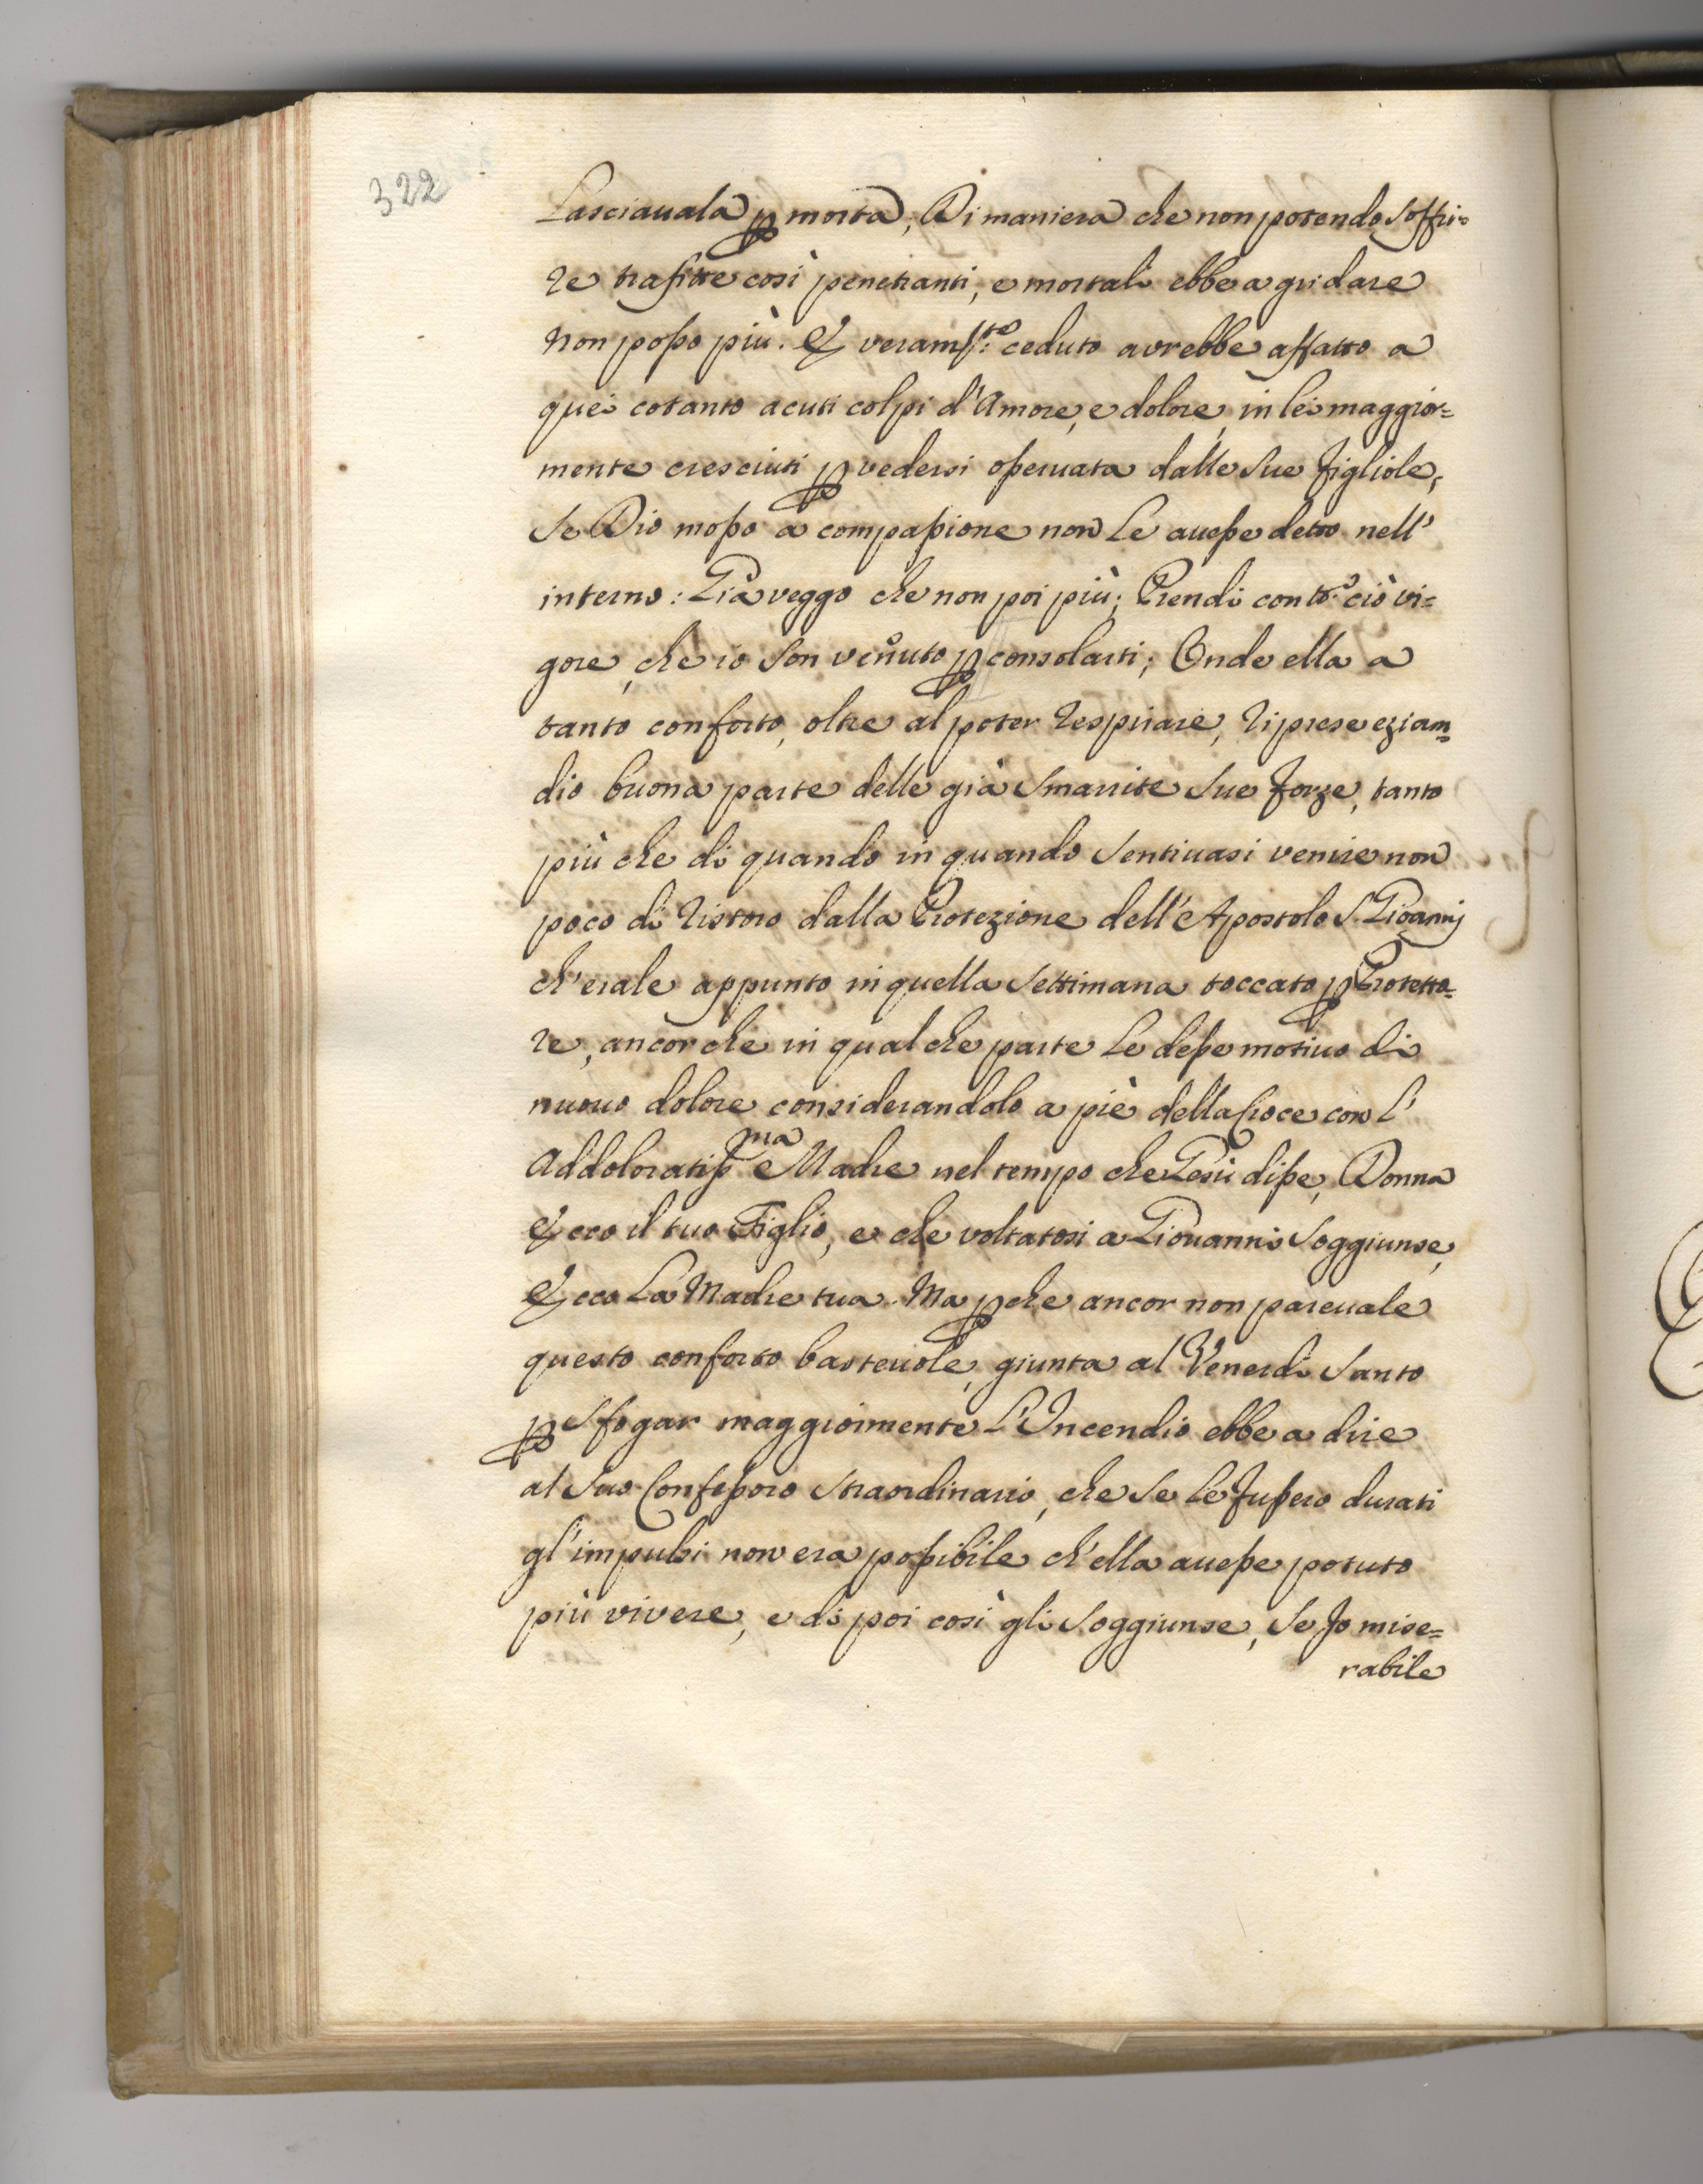 322
Lasciauala p morta; Di maniera che non potendo soffri=
re trafitte così penetranti, e mortali ebbe a gridare
non posso più. E veram.te ceduto avrebbe affatto a
quei cotanto acuti colpi d'Amore, e dolore, in lei maggior=
mente cresciuti p vedersi osseruata dalle sue figliole,
se Dio mosso a compassione non le auesse detto nell'
interno: Già veggo che non poi più; Prendi con to. ciò vi=
gore, che io son venuto p consolarti; Onde ella a
tanto conforto, oltre al poter respirare, riprese eziam=
dio buona parte delle già smarrite sue forze, tanto
più che di quando in quando sentiuasi venire non
poco di ristoro dalla Protezione dell'Apostolo S. Gioannj
ch'erale appunto in quella settimana toccato p Protetto=
re, ancor che in qual che parte le desse motiuo di
nuouo dolore considerandolo a piè della Croce con l'
Addoloratiss.ma Madre nel tempo che Gesù disse, Donna
Ecco il tuo Figlio, e che voltatosi a Giouanni soggiunse,
Ecco La Madre tua. Ma pche ancor non pareuale
questo conforto basteuole, giunta al Venerdì Santo
p sfogar maggiormente L'Incendio ebbe a dire
al suo Confessoro straordinario, che se le fussero durati
gl'impulsi non era possibile ch'ella auesse potuto
più vivere, e di poi così gli soggiunse, se Io mise=
rabile